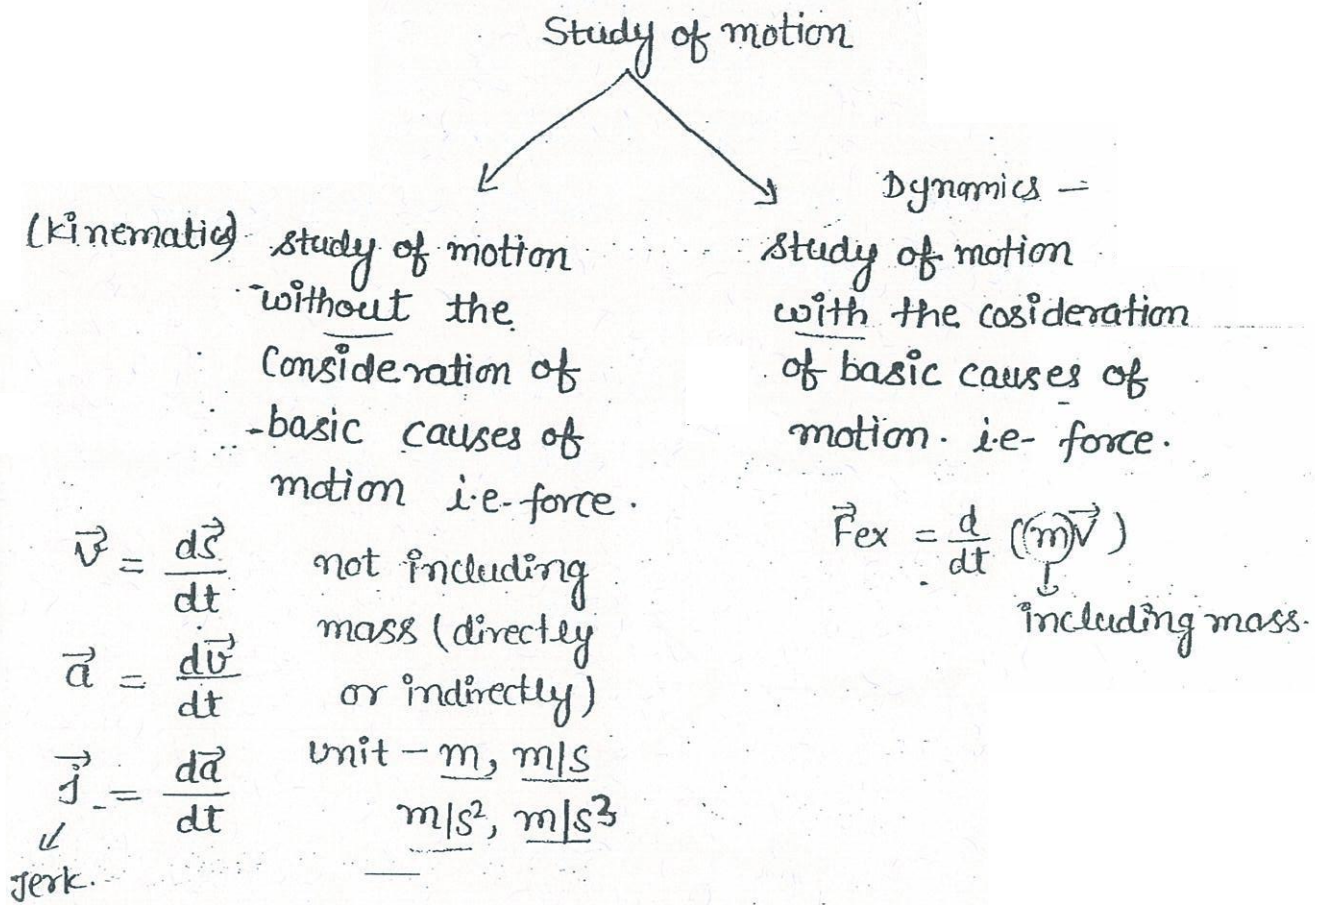 Study of motion
(Kinematics)
study of motion
without the
Consideration of
basic causes of
motion i.e- force.
v⃗ = ds⃗/dt
a⃗ = dv⃗/dt
j⃗ = da⃗/dt
Jerk.
not including
mass (directly
or indirectly)
unit - m, m/s
m/s², m/s³
Dynamics -
study of motion
with the cosideration
of basic causes of
motion. i.e- force.
F⃗ex = d/dt (mv⃗)
including mass.